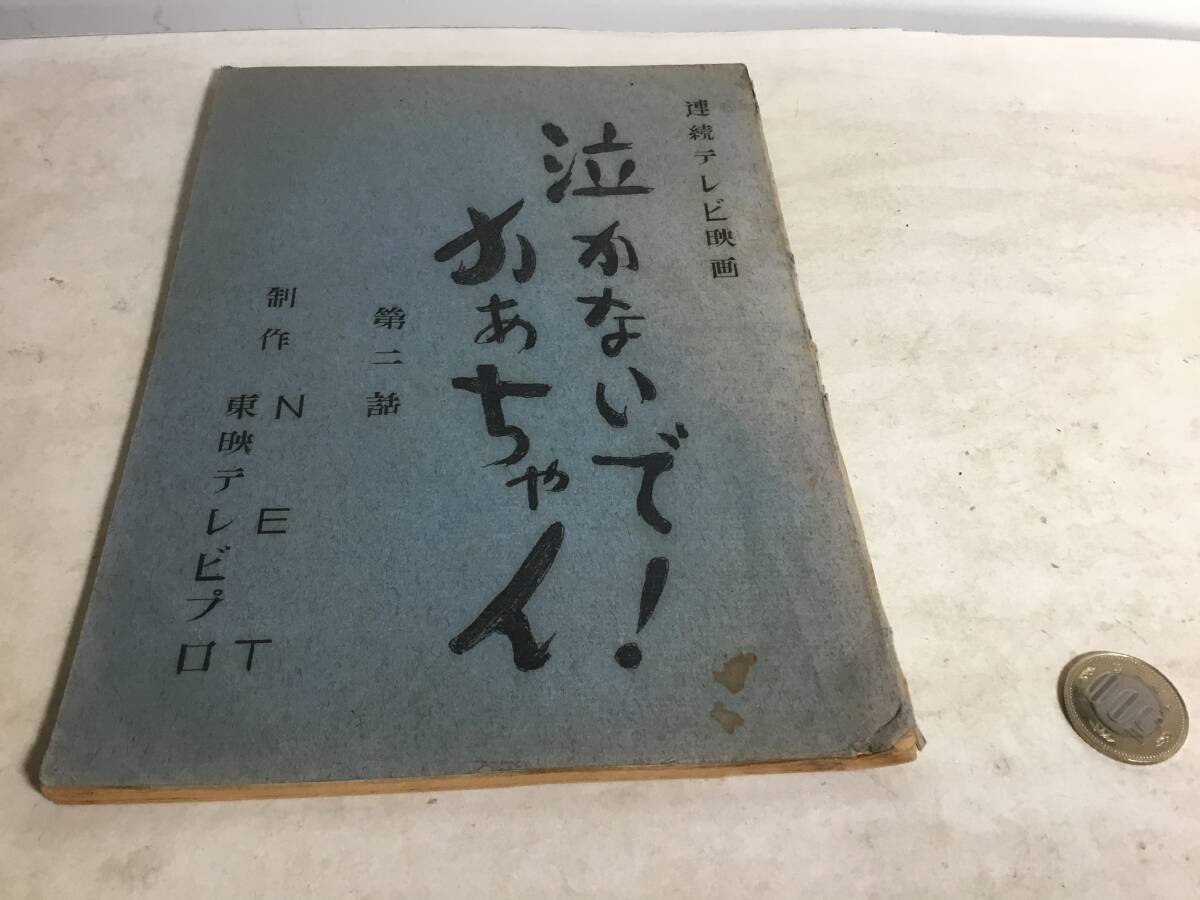 連続テレビ映画
泣かないで!
かあちゃん
第二話
制作NET
東映テレビプロ
500